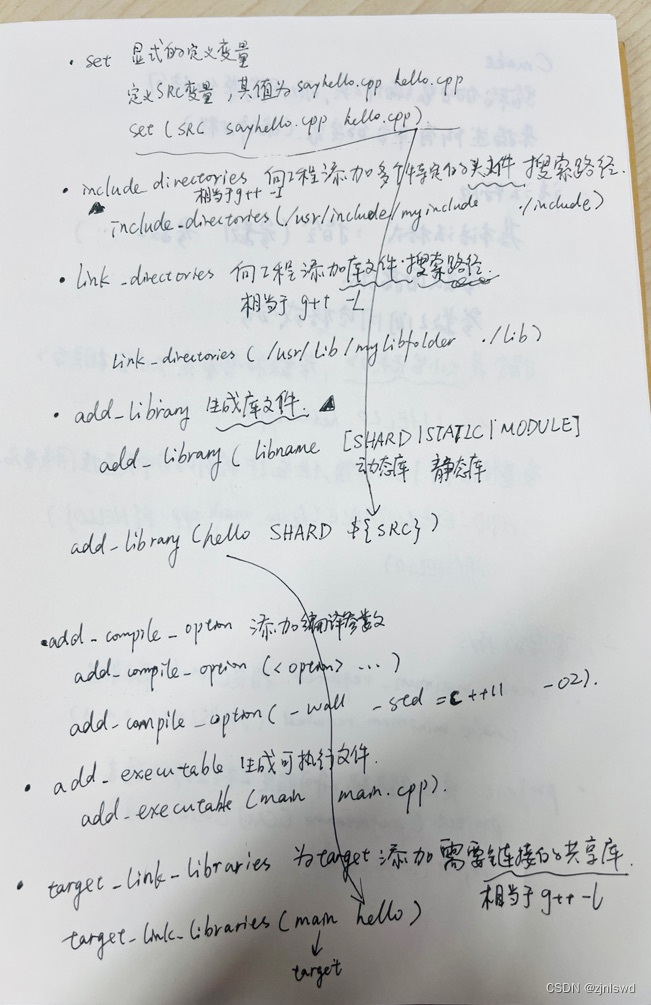 · set 显式的定义变量
定义SRC变量，其值为sayhello.cpp hello.cpp
set (SRC sayhello.cpp hello.cpp)
· include_directories 向工程添加多个特定的头文件 搜索路径.
相当于g++ -I
include_directories (/usr/include/myinclude ./include)
· link_directories 向工程添加库文件 搜索路径.
相当于 g++ -L
link_directories ( /usr/lib/mylibfolder ./lib)
· add_library 生成库文件.
add_library ( libname [SHARD|STATIC|MODULE]
动态库 静态库
add_library (hello SHARD ${SRC})
· add_compile_option 添加编译参数
add_compile_option (<option> ...)
add_compile_option ( -wall -std=c++11 -O2).
· add_executable 生成可执行文件.
add_executable (main main.cpp).
· target_link_libraries 为target添加需要链接的共享库.
相当于g++ -l
target_link_libraries (main hello)
target
CSDN @zjnlswd